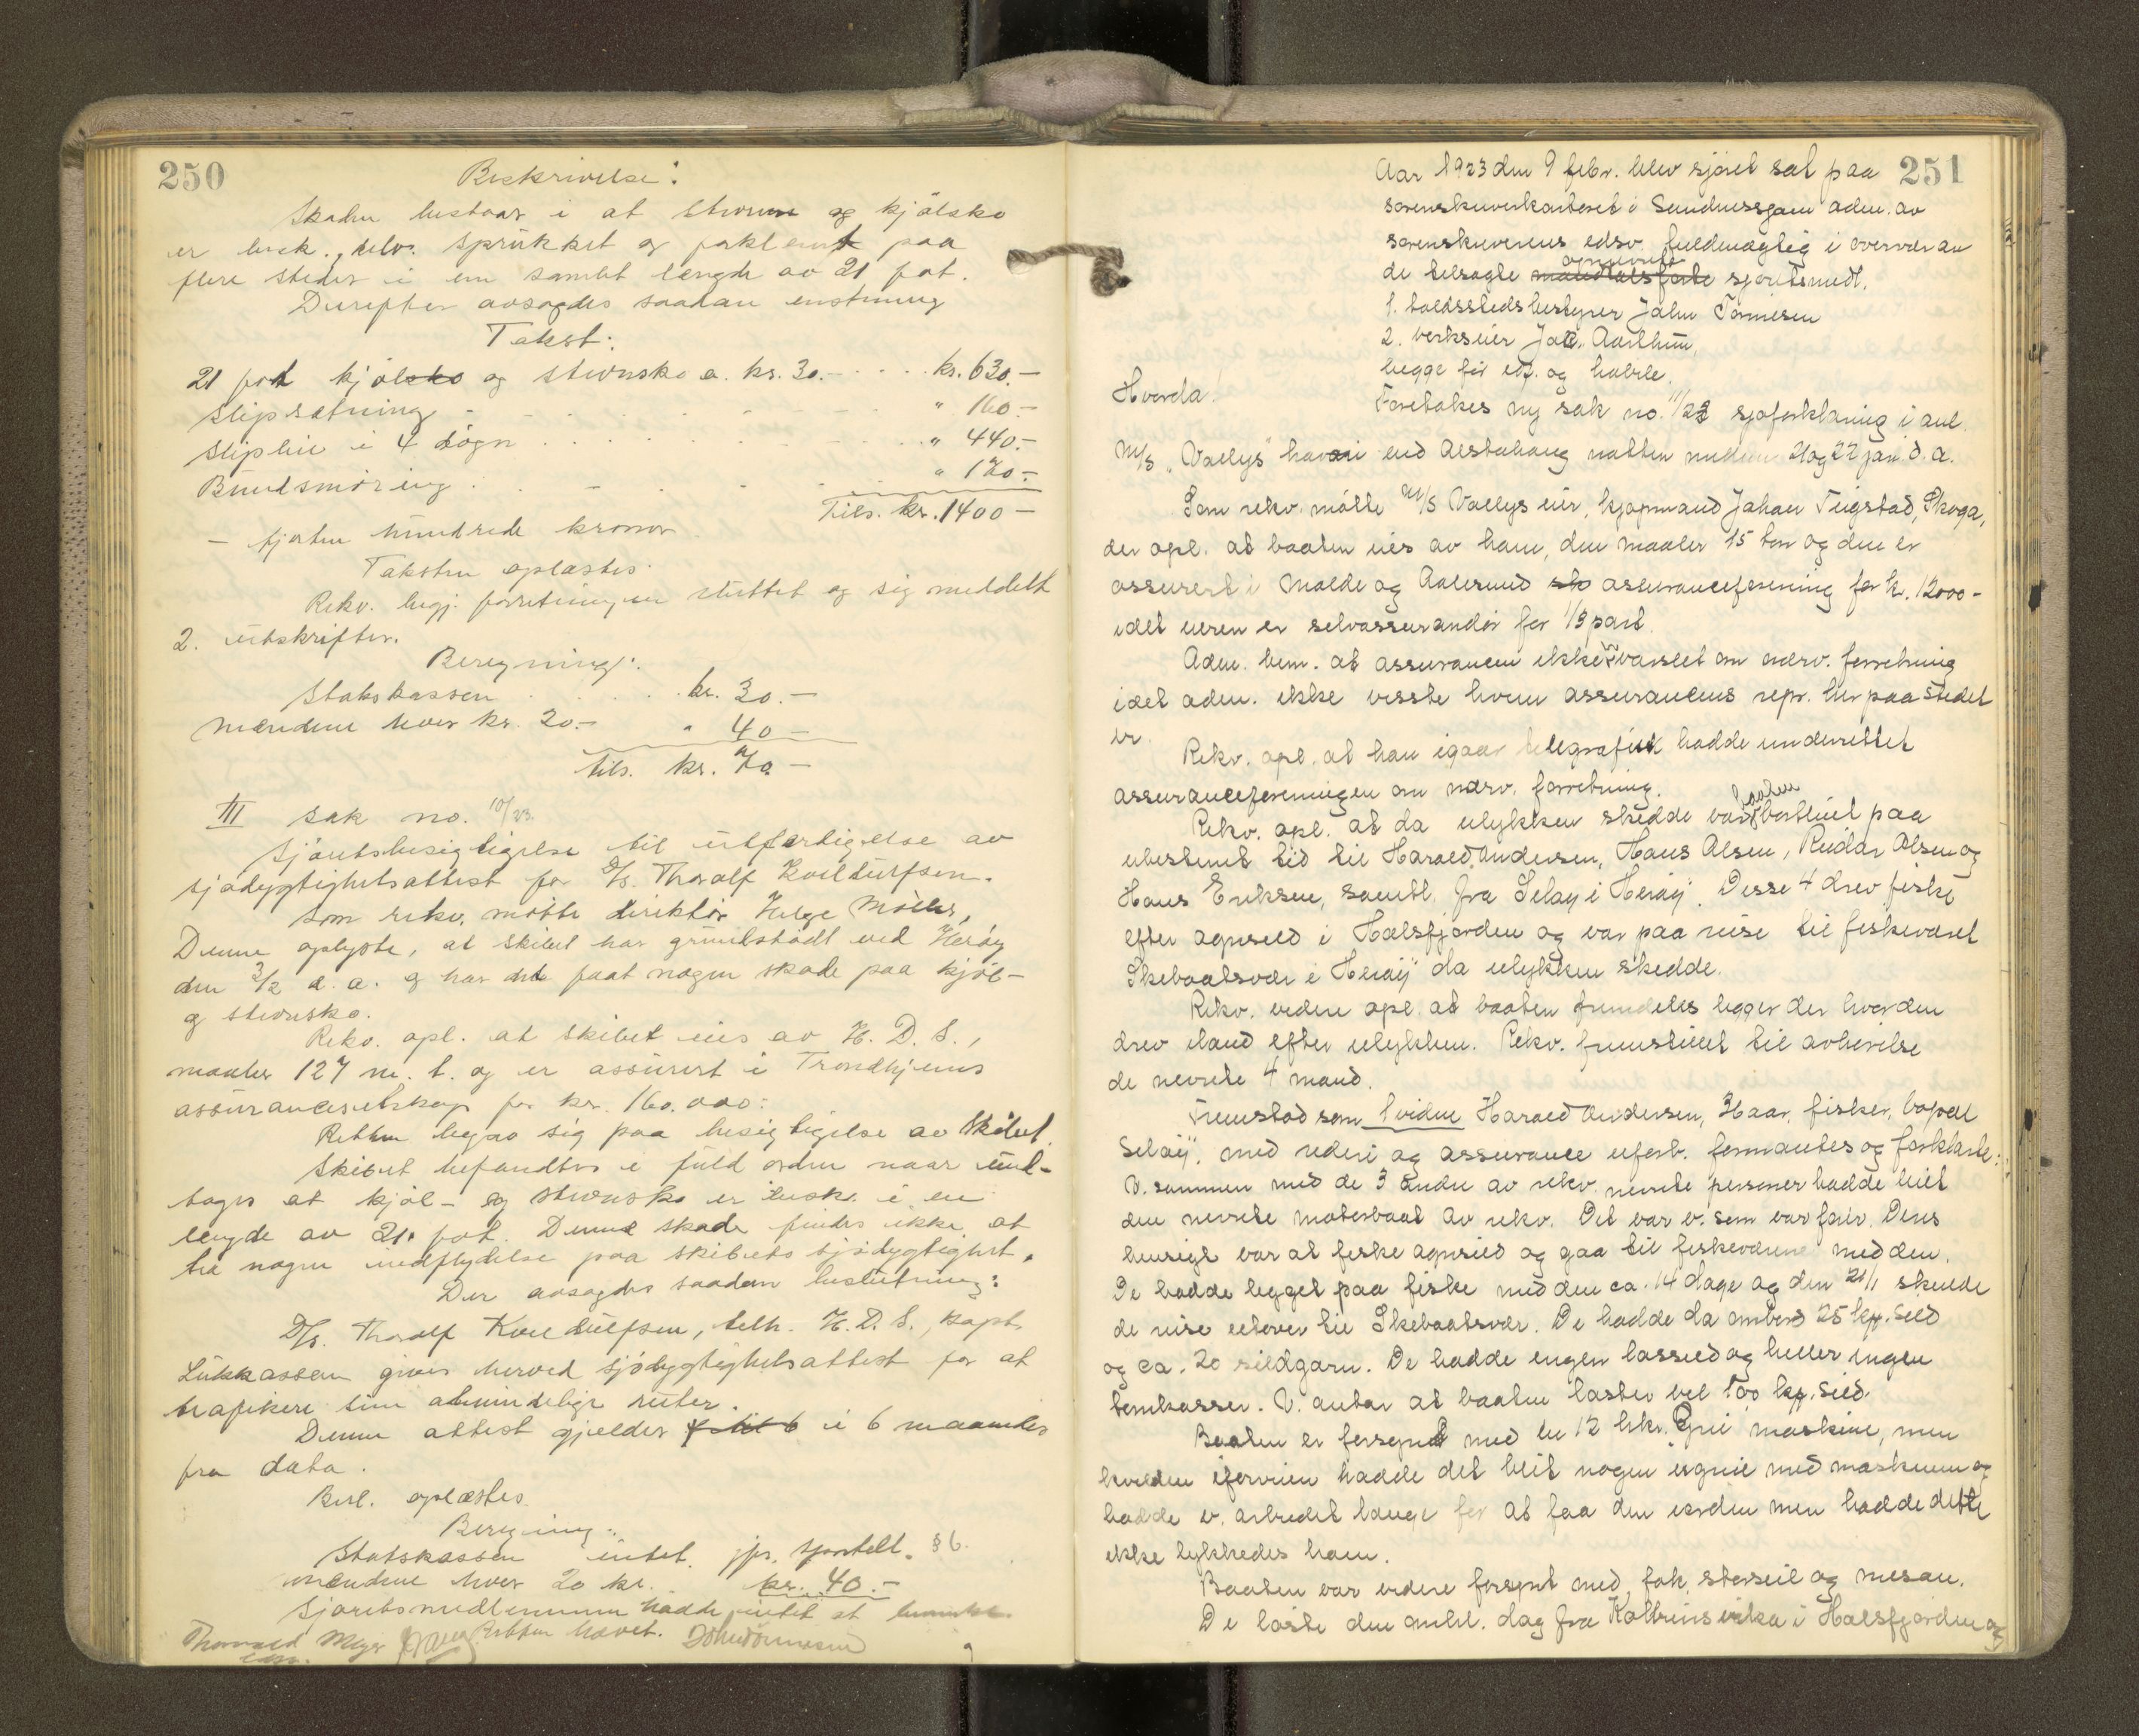 250
Beskrivelse:
Skaden bestaar i at stevn og kjølsko
er brukk., delv. sprukket og paa
flere steder i en samlet længde av 21 fot.
Derefter avsagdes saadan enstemmig
Takst:
21 fot kjølsko og stevnsko a. kr. 30.- . . . . kr. 630.-
Slipsætning - . . . . . . . " 160.-
Slipleie i 4 døgn . . . . . . . " 440.-
Bundsmøring . . - . . . " 170.-
Tils. kr. 1400 -
- fjorten hundrede kroner
Taksten oplæstes.
Rekv. begj. forretningen sluttet og sig meddelt
2. utskrifter.
Beregning:
Statskassen . . . . . kr. 30.-
Mændene hver kr. 20.- " 40 -
tils. kr. 70 -
III sak no. 10/23.
Sjøretsbesigtigelse til utfærdigelse av
sjødygtighetsattest for D/s. Thoralf Kveldulfsen.
Som rekv. møtte direktør Helge Møller,
Denne oplyste, at skibet har grundstødt ved Herøy
den 3/2 d. a. og har da faat nogen skade paa kjøl-
og stevnsko.
Rekv. opl. at skibet eies av H. D. S.,
maaler 127 m. t. og er assurert i Trondhjems
assuranceselskap for kr. 160.000:
Retten begav sig paa besigtigelse av skibet.
Skibet befandtes i fuld orden naar und-
tages at kjøl- og stevnsko er brukk. i en
lengde av 21. fot. Denne skade findes ikke at
ha nogen indflydelse paa skibets sjødygtighet.
Der avsagdes saadan beslutning:
D/s. Thoralf Kveldulfsen, tilh. H. D. S., kapt.
Lukkassen gives herved sjødygtighetsattest for at
trafikere sine almindelige ruter.
Denne attest gjelder i 6 maaneder
fra dato.
Besl. oplæstes.
Beregning:
Statskassen intet. jfr. sportell. § 6.
mændene hver 20 kr. kr. 40.-
Sjøretsmedlemmene hadde intet at bemerke.
Retten hævet.
Thorvald Meyer
251
Aar 1923 den 9 febr. blev sjøret sat paa
sorenskriverkontoret i Sandnessjøen adm. av
sorenskriverens edsv. fuldmægtig i overvær av
de tilsagte opnevnte sjøretsmedl.
1. toldstedsbestyrer John Tønnesen
2. verkseier Jac. Aarthun,
begge før eds. og habile.
Hvorda!
Foretokes ny sak no. 11/23 sjøforklaring i anl.
M/S "Vaelys" havari ved Alstahaug natten mellem 21 og 22 jan d. a.
Som rekv. møtte M/S Vaelys eier, kjøpmand Johan Teigstad, Skoga,
der opl. at baaten eies av ham, den maaler 15 ton og den er
assurert i Molde og Aalesund assuranceforening for kr. 12000-
idet eieren er selvassurandør for 1/3 part.
Adm. bem. at assurancen ikke er varslet om nærv. forretning
idet adm. ikke visste hvem assurancens repr. her paa stedet
er.
Rekv. opl. at han igaar telegrafisk hadde underrettet
assuranceforeningen om nærv. forretning.
Rekv. opl. at da ulykken skedde var baaten bortleiet paa
ubestemt tid til Harald Andersen, Hans Olsen, Reidar Olsen og
Hans Eriksen, samtl. fra Seløy i Herøy. Disse 4 drev fiske
efter agnsild i Halsfjorden og var paa reise til fiskeværet
Skibaatsvær i Herøy da ulykken skedde.
Rekv. videre opl. at baaten fremdeles ligger der hvor den
drev iland efter ulykken. Rekv. fremstillet til avhørelse
de nevnte 4 mand.
Fremstod som 1 vidne Harald Andersen, 36 aar, fisker, bopæl
Seløy, med rederi og assurance uforb. formantes og forklarte:
V. sammen med de 3 andre av rekv. nevnte personer hadde leiet
den nevnte motorbaat av rekv. Det var v. som var fører. Deres
hensigt var at fiske agnsild og gaa til fiskeværene med den.
De hadde ligget paa fiske med den ca. 14 dage og den 21/1 skulde
de reise utover til Skibaatsvær. De hadde da ombord 25 hl. sild
og ca. 20 sildgarn. De hadde ingen lassild og heller ingen
tomkasser. V. antar at baaten laster vel 100 hl. sild.
Baaten er forsynt med en 12 hkr. Grei maskine, men
kvelden iforveien hadde det blit nogen ugreie med maskinen og
hadde v. arbeidet længe for at faa den iorden men hadde dette
ikke lykkedes ham.
Baaten var videre forsynt med fok, storseil og mesan.
De løste den omhl. dag fra Kattrinsvika i Halsfjorden og